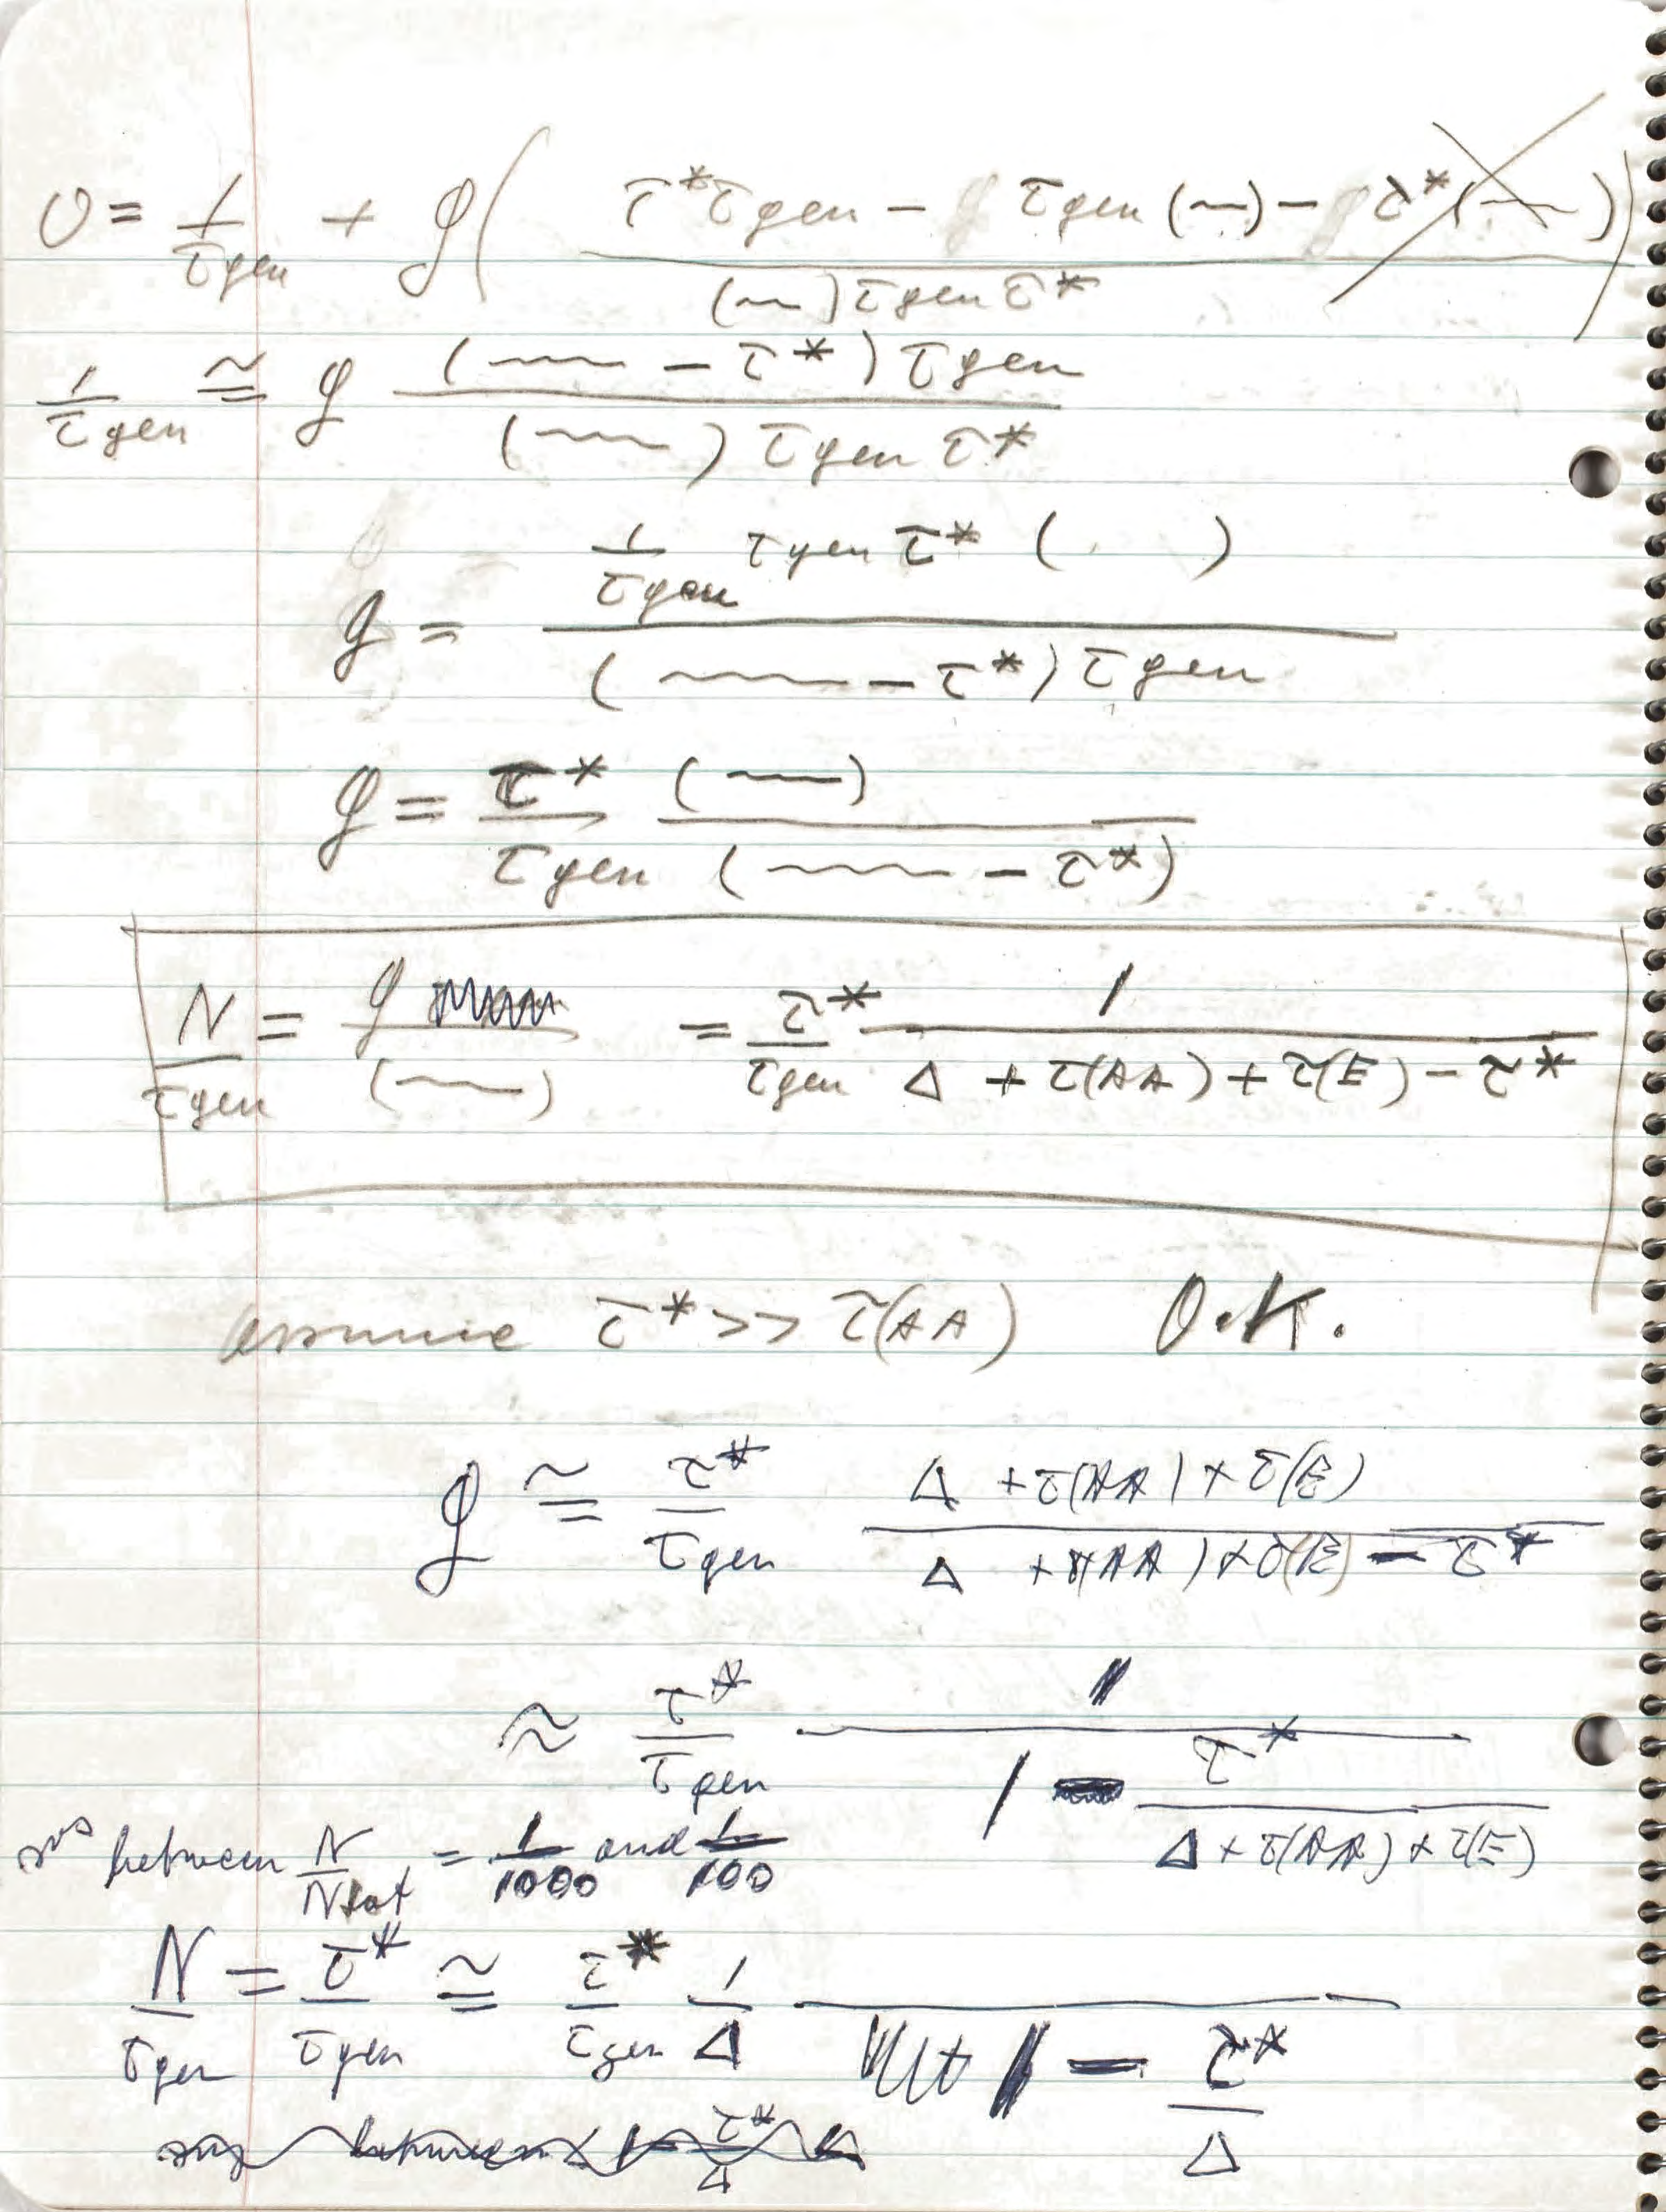 0 = 1/τgen + g( (τ*τgen − τgen (~) − τ*(~)) / ((~)τgen τ*) )
1/τgen ≅ g ((~~ − τ*) τgen) / ((~~) τgen τ*)
g = (1/τgen τgen τ* ( )) / ((~~ − τ*) τgen)
g = τ*/τgen (~~)/(~~ − τ*)
N/τgen = g/(~~) = τ*/τgen 1/(Δ + τ(AA) + τ(E) − τ*)
assume τ* >> τ(AA) O.K.
g ≅ τ*/τgen (Δ + τ(AA) + τ(E))/(Δ + τ(AA) + τ(E) − τ*)
≈ τ*/τgen 1/(1 − τ*/(Δ + τ(AA) + τ(E)))
between N/Ntot = 1/1000 and 1/100
N/τgen = τ*/τgen ≅ τ*/τgen 1/Δ /(1 − τ*/Δ)
say between 1 − τ*/Δ